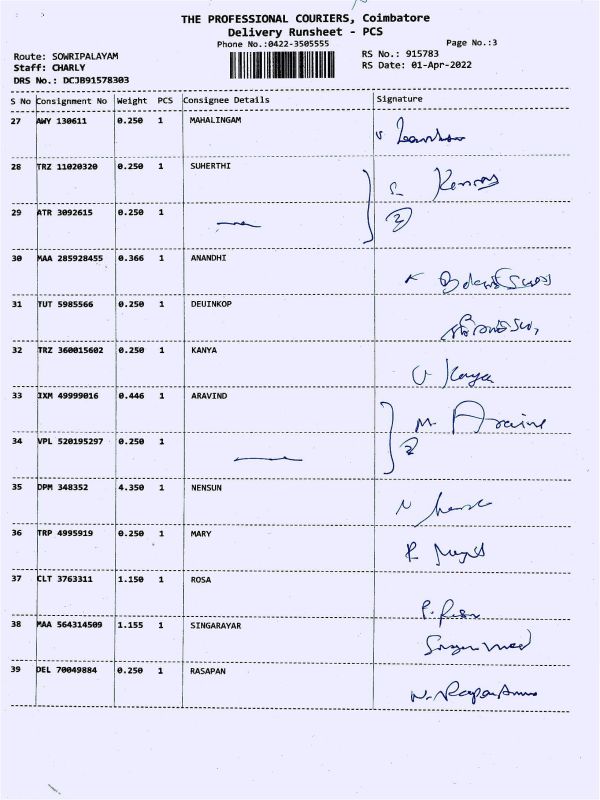 THE PROFESSIONAL COURIERS, Coimbatore
Delivery Runsheet - PCS
Phone No.:0422-3505555
Page No.:3
Route: SOWRIPALAYAM
RS No.: 915783
Staff: CHARLY
RS Date: 01-Apr-2022
DRS No.: DCJB91578303
S No Consignment No Weight PCS Consignee Details Signature
27 AWY 130611 0.250 1 MAHALINGAM
28 TRZ 11020320 0.250 1 SUHERTHI
29 ATR 3092615 0.250 1 2
30 MAA 285928455 0.366 1 ANANDHI
31 TUT 5985566 0.250 1 DEUINKOP
32 TRZ 360015602 0.250 1 KANYA
33 IXM 49999016 0.446 1 ARAVIND
34 VPL 520195297 0.250 1 2
35 DPM 348352 4.350 1 NENSUN
36 TRP 4995919 0.250 1 MARY
37 CLT 3763311 1.150 1 ROSA
38 MAA 564314509 1.155 1 SINGARAYAR
39 DEL 70049884 0.250 1 RASAPAN